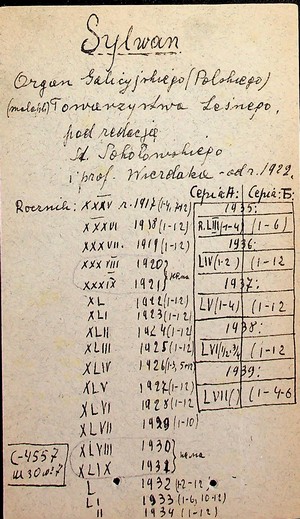 Sylwan
Organ Galicyjskiego (Polskiego)
Towarzystwa Leśnego,
pod redacją
St. Sokołowskiego
i prof. Wierdaka - od r. 1922.
Roczniki: XXXV r. 1917
Серія: А: Серія: Б:
XXXVI 1918 (1-12)
XXXVII. 1919 (1-12)
XXXVIII 1920 } нема
XXXIX 1921
XL 1922 (1-12)
XLI 1923 (1-12)
XLII 1924 (1-12)
XLIII 1925 (1-12)
XLIV 1926
XLV 1927 (1-12)
XLVI 1928 (1-12
XLVII 1929 (1-10)
XLVIII 1930 } нема
XLIX 1931
L 1932
LI 1933 (1-6, 10-12)
II 1934 (1-12)
1935:
R. LIII (1-4) (1-6)
1936:
LIV (1-2) (1-12
1937:
LV (1-4) (1-12
1938:
LVI (1/2-3/4 (1-12
1939:
LVII ( ) (1-4-6
С-4557